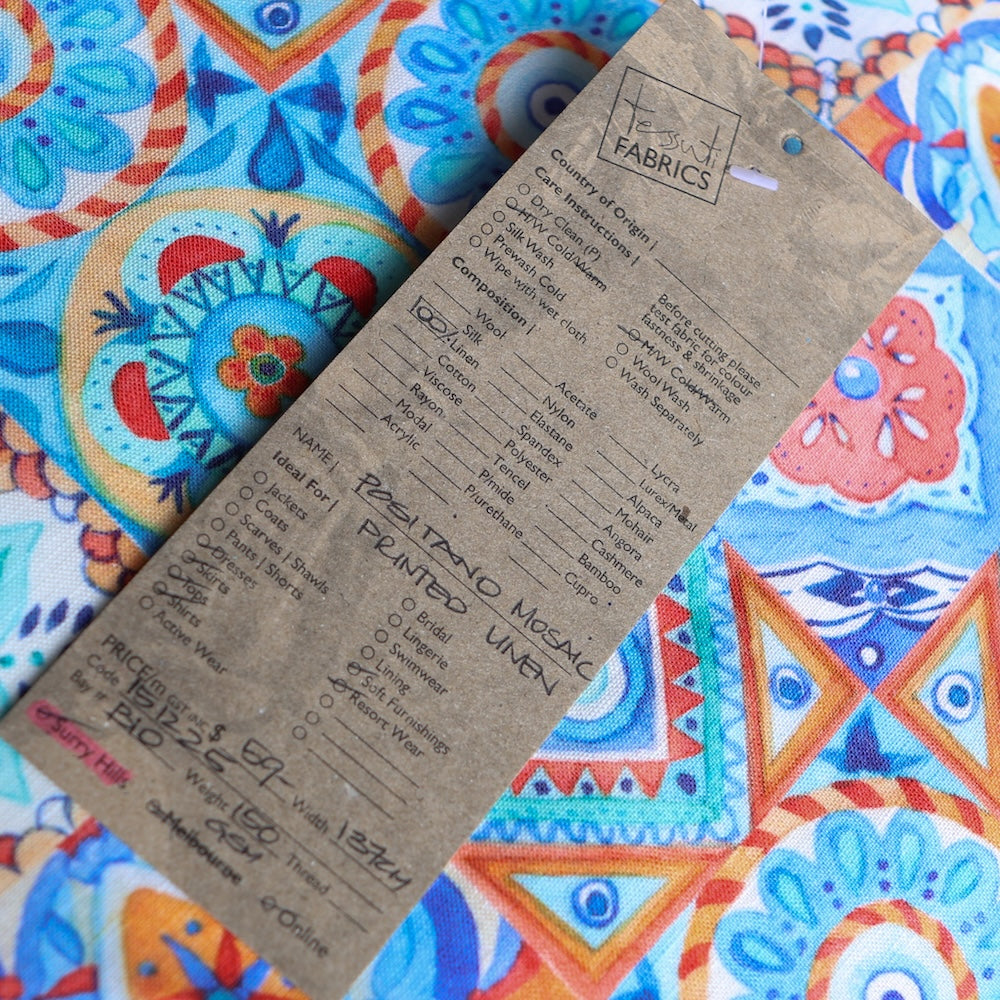 tessuti
FABRICS
Country of Origin |
Care Instructions |
Dry Clean (P)
H/W Cold/Warm
Silk Wash
Prewash Cold
Wipe with wet cloth
Before cutting please
test fabric for colour
fastness & shrinkage
M/W Cold/Warm
Wool Wash
Wash Separately
Composition |
Wool
Silk
100% Linen
Cotton
Viscose
Rayon
Modal
Acrylic
Acetate
Nylon
Elastane
Spandex
Polyester
Tencel
P/mide
P/urethane
Lycra
Lurex/Metal
Alpaca
Mohair
Angora
Cashmere
Bamboo
Cupro
NAME | POSITANO MOSAIC
PRINTED LINEN
Ideal For |
Jackets
Coats
Scarves | Shawls
Pants | Shorts
Dresses
Skirts
Tops
Shirts
Active Wear
Bridal
Lingerie
Swimwear
Lining
Soft Furnishings
Resort Wear
PRICE/m GST INC $ 59-
Width 137CM
Code 151225
Weight 150 GSM
Thread
Bay nr B10
Surry Hills
Melbourne
Online